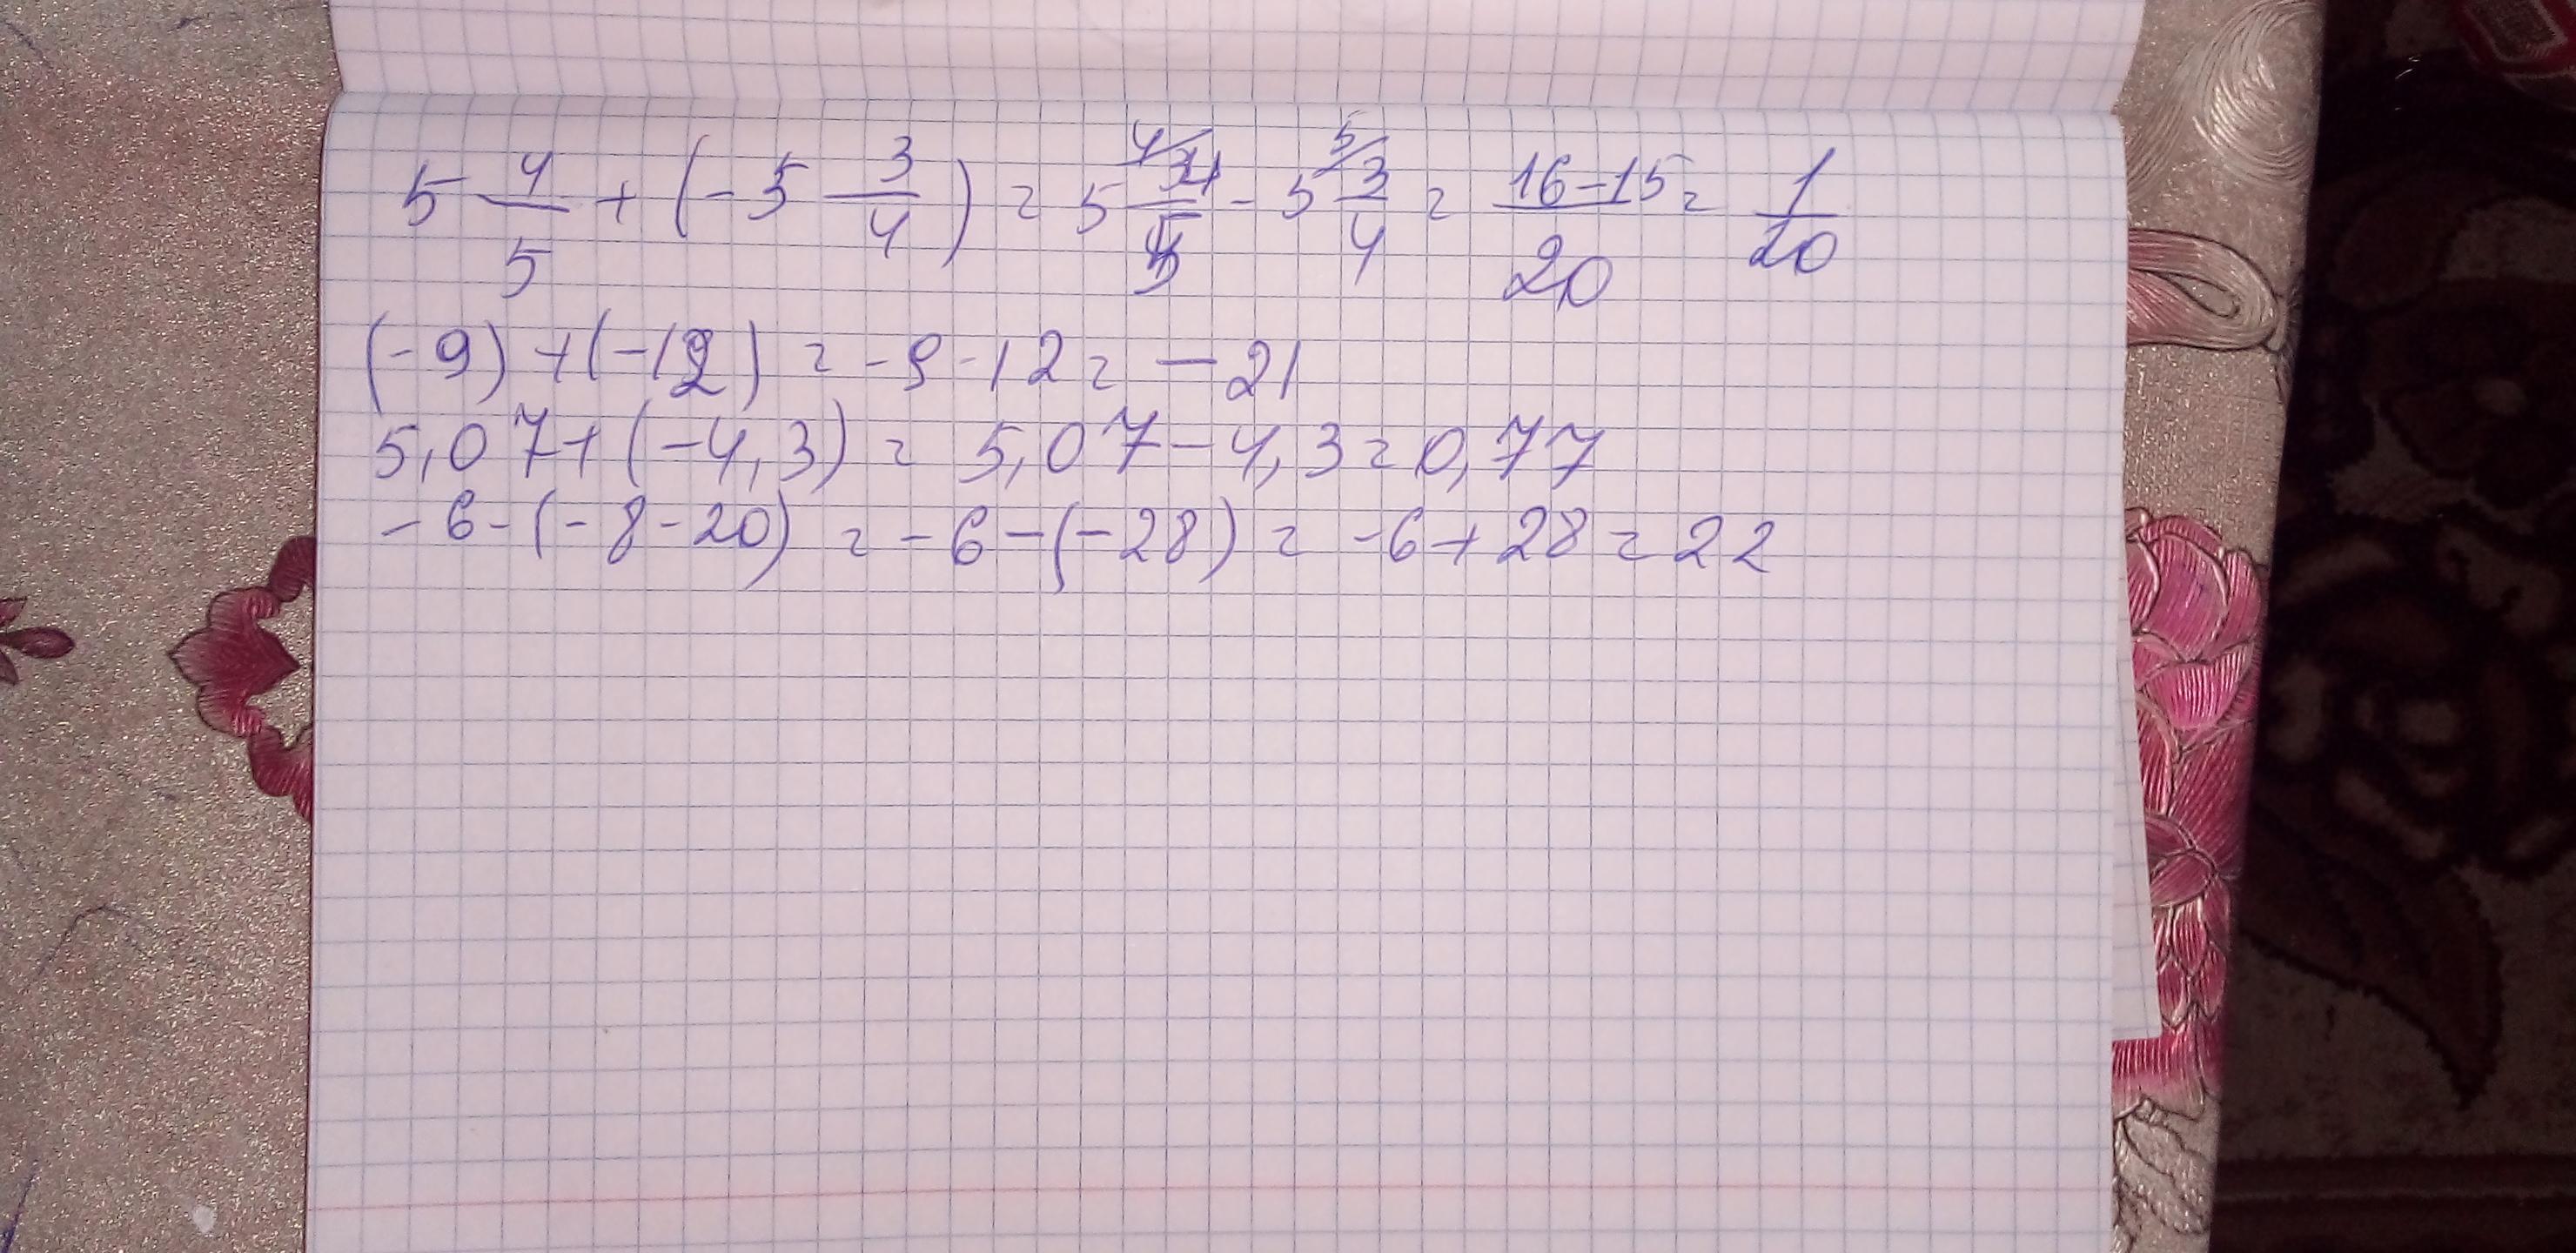 5 4/5 + (-5 3/4) = 5 4/5 - 5 3/4 = 16-15/20 = 1/20
(-9) + (-12) = -9-12 = -21
5,07+(-4,3) = 5,07-4,3=0,77
-6-(-8-20) = -6-(-28) = -6+28=22